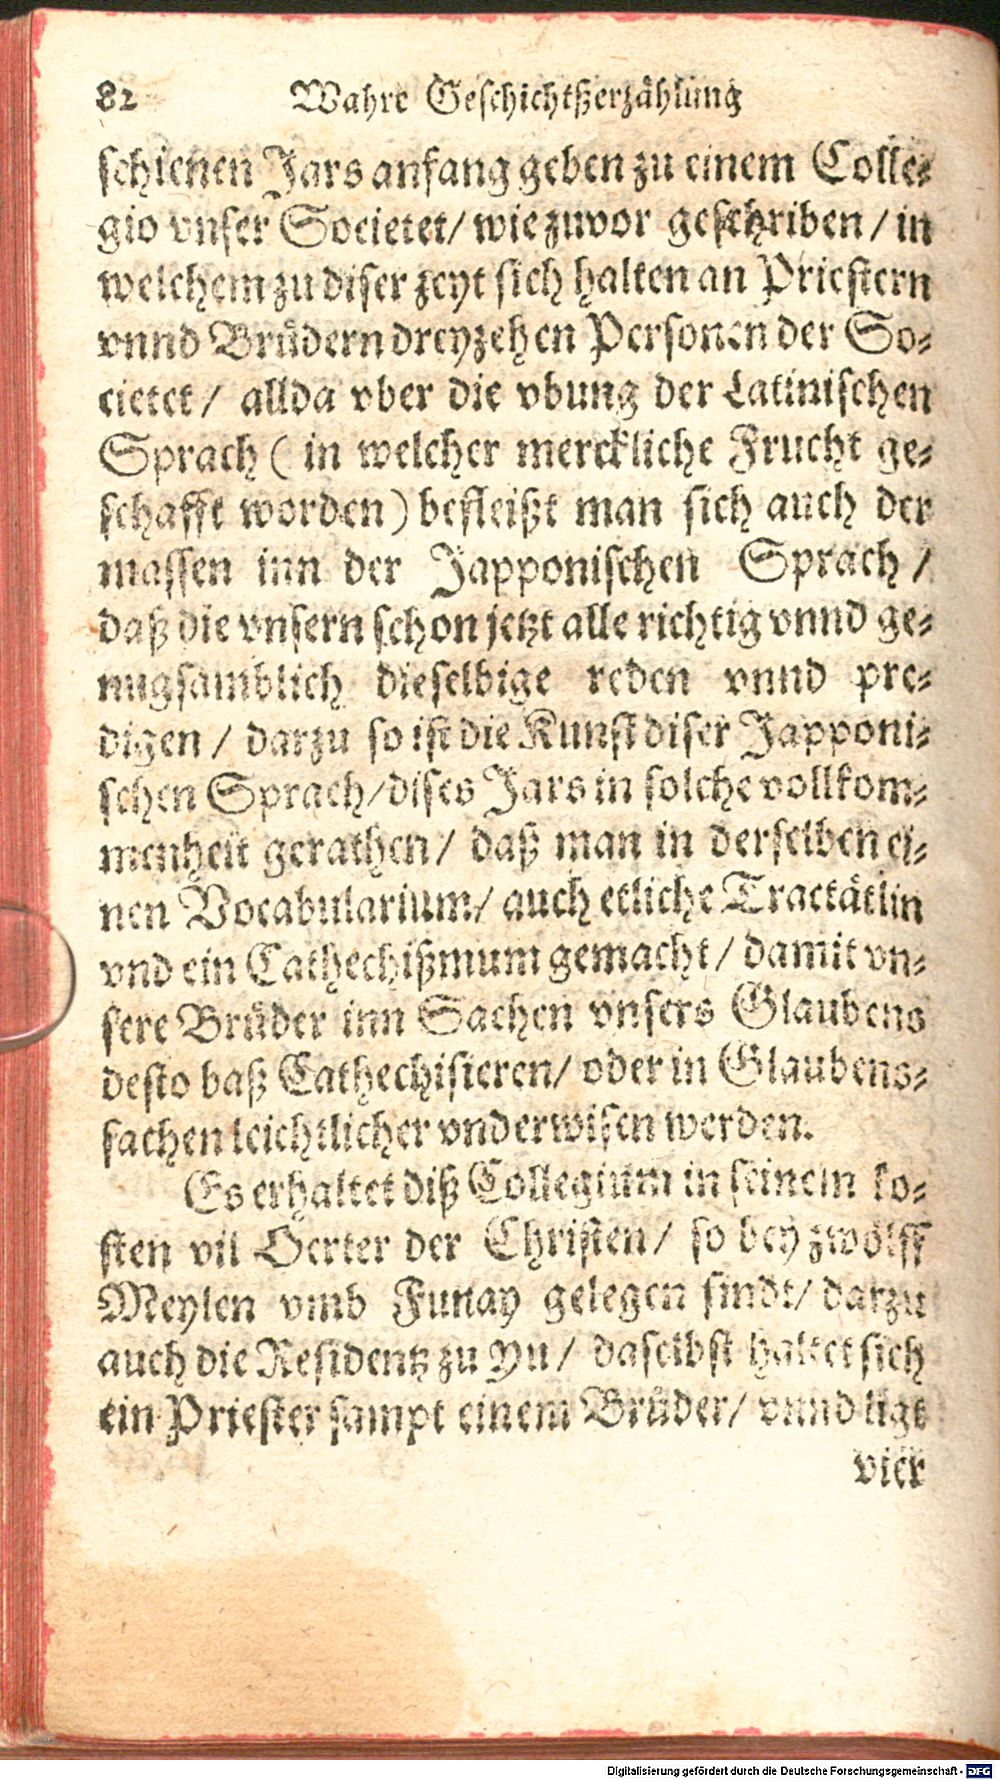 82 Wahre Geschichtßerzählung
schienen Jars anfang geben zu einem Colle-
gio vnser Societet/ wie zuvor geschriben / in
welchem zu diser zeyt sich halten an Priestern
vnnd Brůdern dreyzehen Personen der So-
cietet / allda vber die vbung der Latinischen
Sprach ( in welcher merckliche Frucht ge-
schafft worden ) befleißt man sich auch der
massen inn der Japponischen Sprach /
daß die vnsern schon jetzt alle richtig vnnd ge-
nugsamblich dieselbige reden vnnd pre-
digen / darzu so ist die Kunst diser Japponi-
schen Sprach/ dises Jars in solche vollkom-
menheit gerathen / daß man in derselben ei-
nen Vocabularium/ auch etliche Tractätlin
vnd ein Cathechißmum gemacht / damit vn-
sere Brůder inn Sachen vnsers Glaubens
desto baß Cathechisieren/ oder in Glaubens-
sachen leichtlicher vnderwisen werden.
Es erhaltet diß Collegium in seinem ko-
sten vil Oerter der Christen/ so bey zwölff
Meylen vmb Funay gelegen sindt/ darzu
auch die Residentz zu Yu / daselbst haltet sich
ein Priester sampt einem Brůder/ vnnd ligt
vier
Digitalisierung gefördert durch die Deutsche Forschungsgemeinschaft - DFG